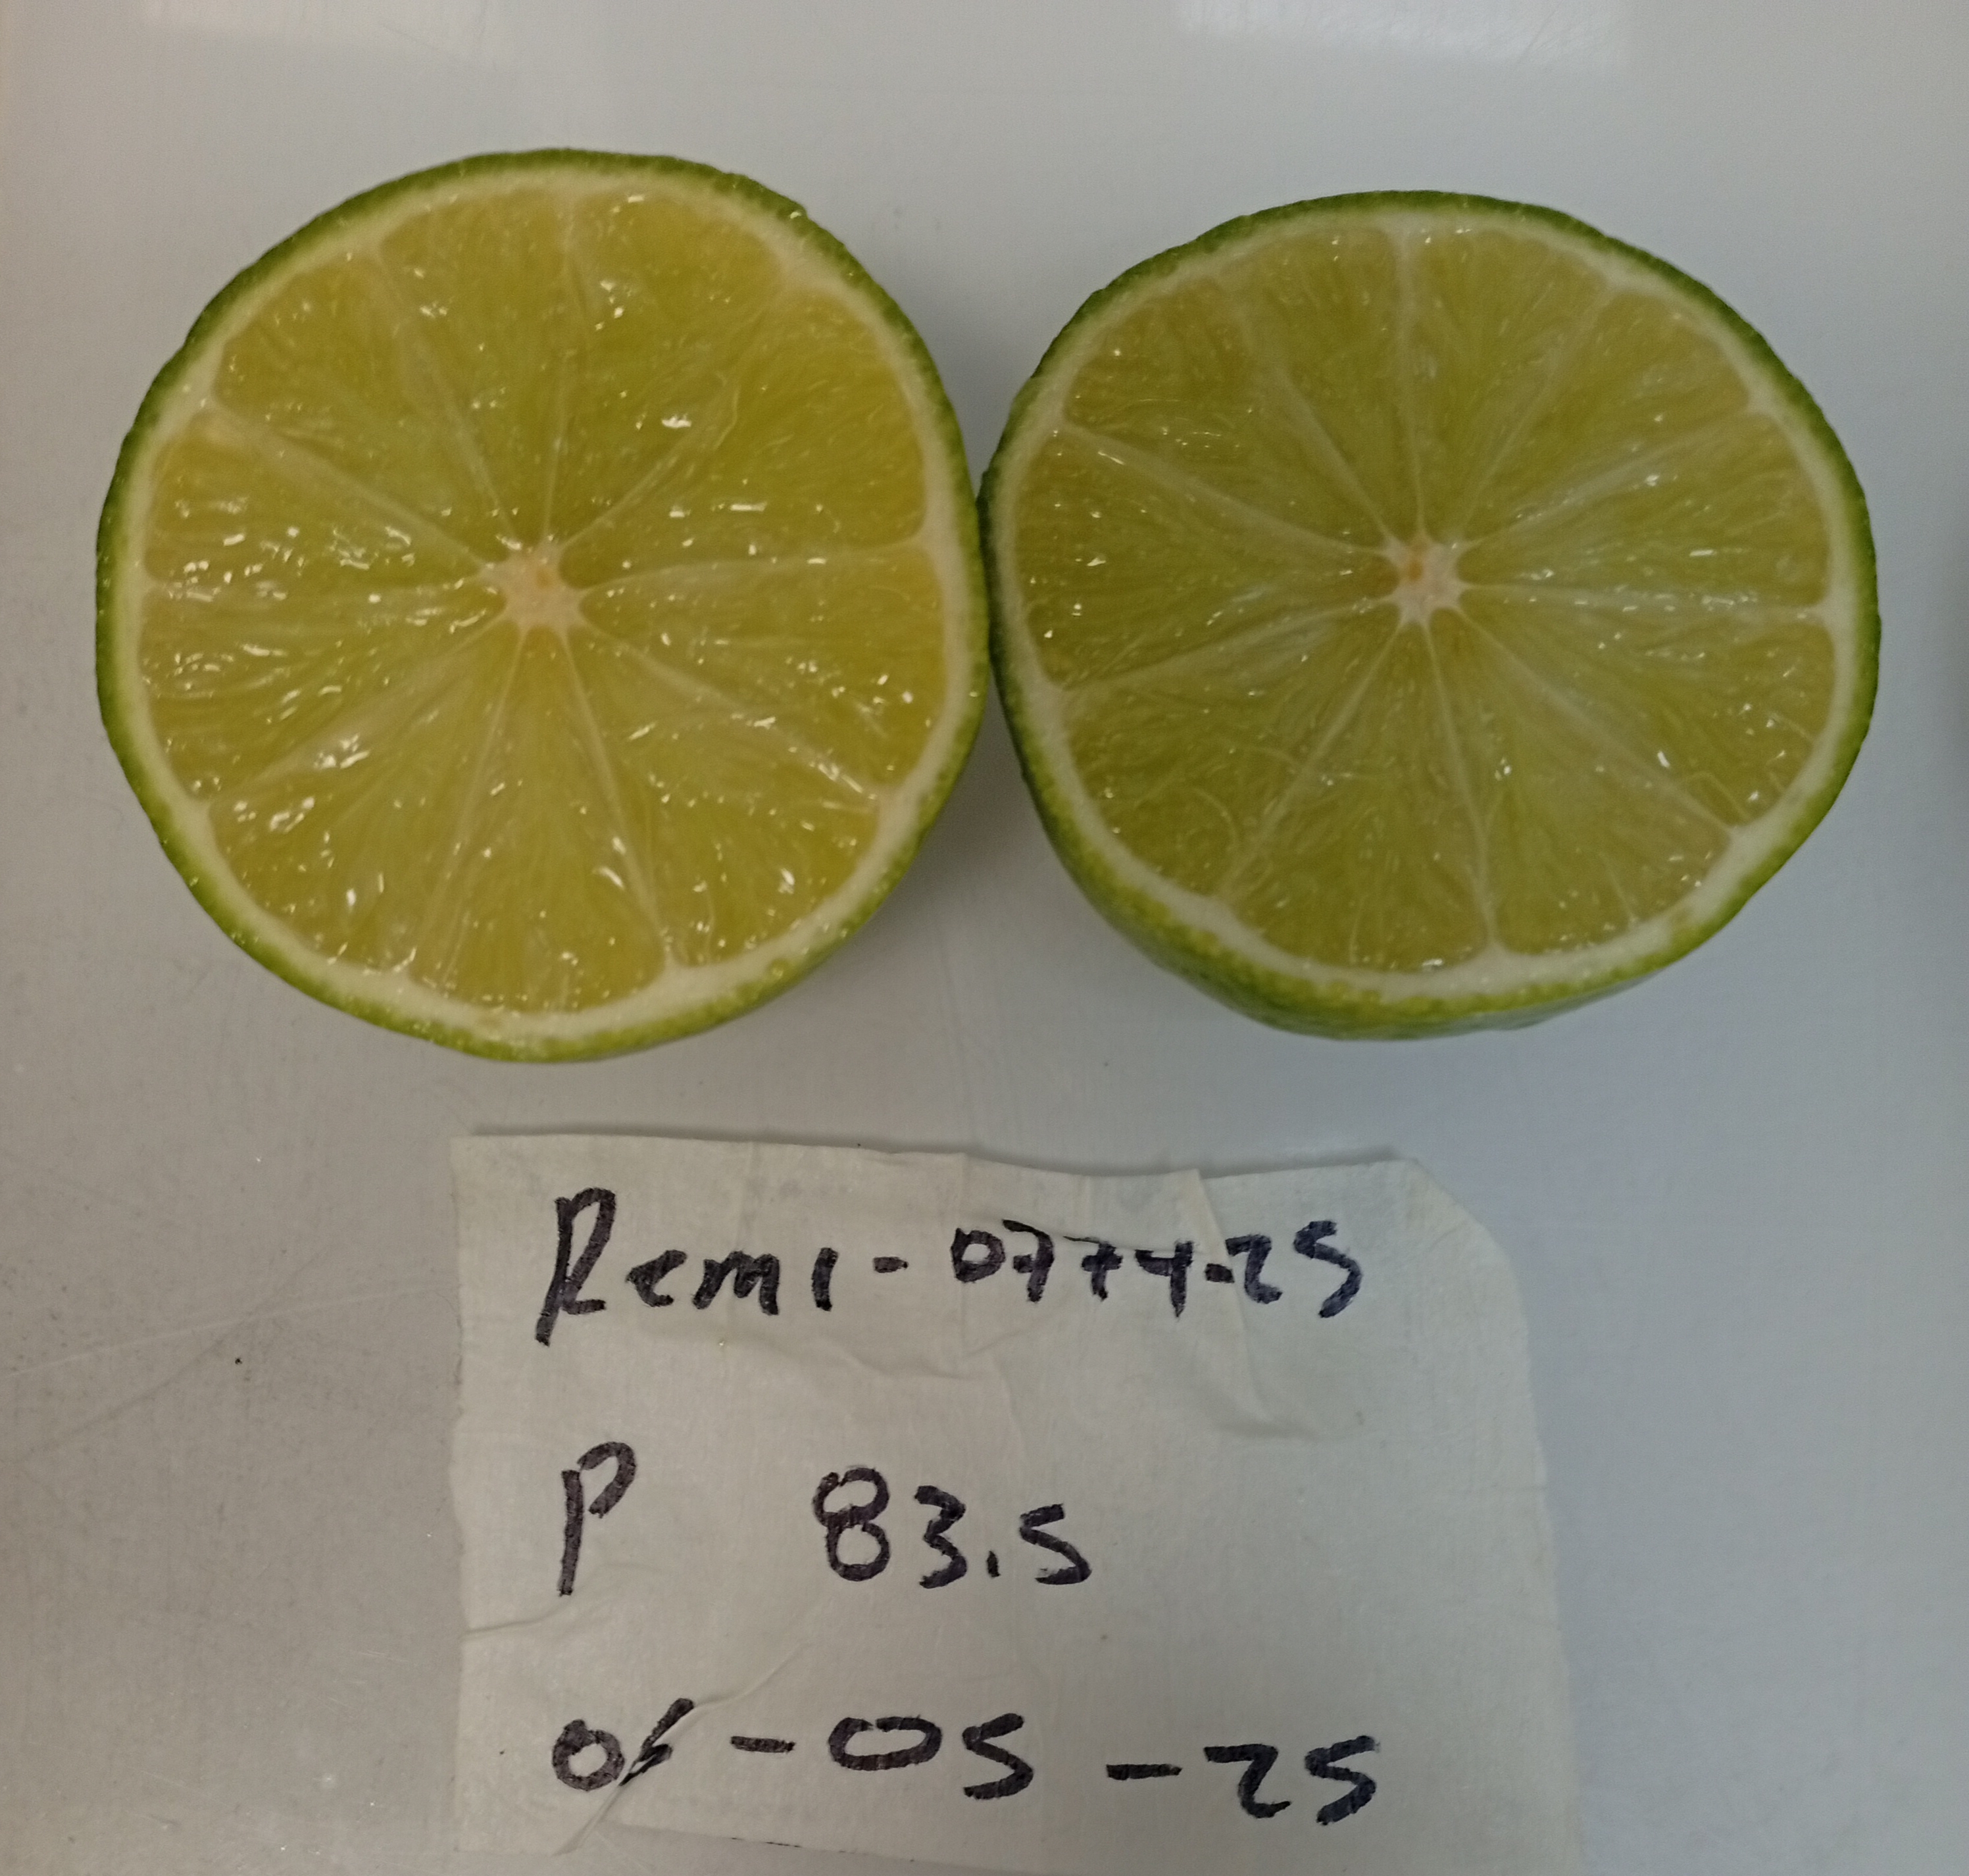 Remi-0774-25
P 83.5
-05-25